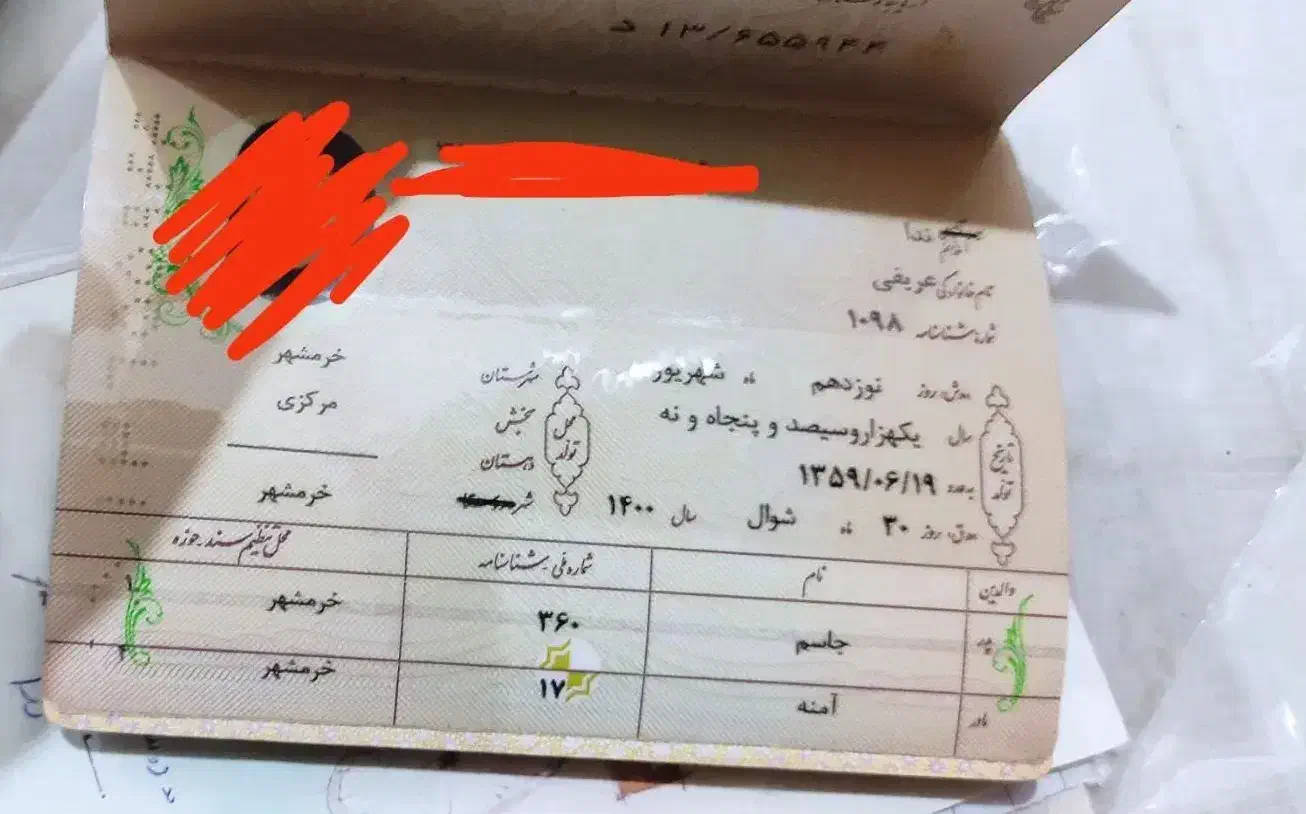 ۱۳/۶۵۵۹۴۴ د
نام ندا
نام خانوادگی عریفی
شماره شناسنامه ۱۰۹۸
ه‍.ش. روز نوزدهم ماه شهریور
سال یکهزاروسیصد و پنجاه و نه
به عدد ۱۳۵۹/۰۶/۱۹
ه‍.ق. روز ۳۰ ماه شوال سال ۱۴۰۰
تاریخ تولد
محل تولد
شهرستان خرمشهر
بخش مرکزی
دهستان
شهر خرمشهر
والدین نام شماره ملی-شناسنامه محل تنظیم سند-حوزه
پدر جاسم ۳۶۰ خرمشهر ۱
مادر آمنه ۱۷ خرمشهر ۲